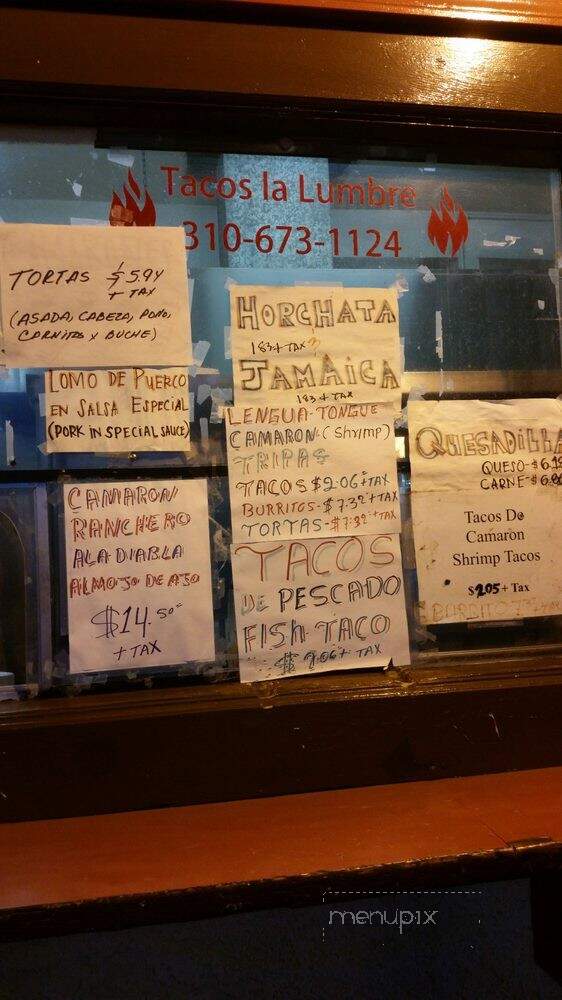 Tacos la Lumbre
310-673-1124
TORTAS $5.94
+ TAX
(ASADA, CABEZA, POllO,
CARNITAS Y BUCHE)
LOMO DE PUERCO
EN SALSA ESPECIAL
(PORK IN SPECIAL SAUCE)
CAMARON
RANCHERO
ALA DIABLA
AL MOJO DE AJO
$14.50
+ TAX
HORCHATA
183 + TAX
JAMAICA
183 + TAX
LENGUA-TONGUE
CAMARON-(Shrimp)
TRIPAS
TACOS $2.06 + TAX
BURRITOS-$7.32 + TAX
TORTAS-$7.32 + TAX
TACOS
DE PESCADO
FISh TACO
$ 2.06 + TAX
QUESADILLA
QUESO-$6.
CARNE-$6.
Tacos De
Camaron
Shrimp Tacos
$2.05 + Tax
menupix